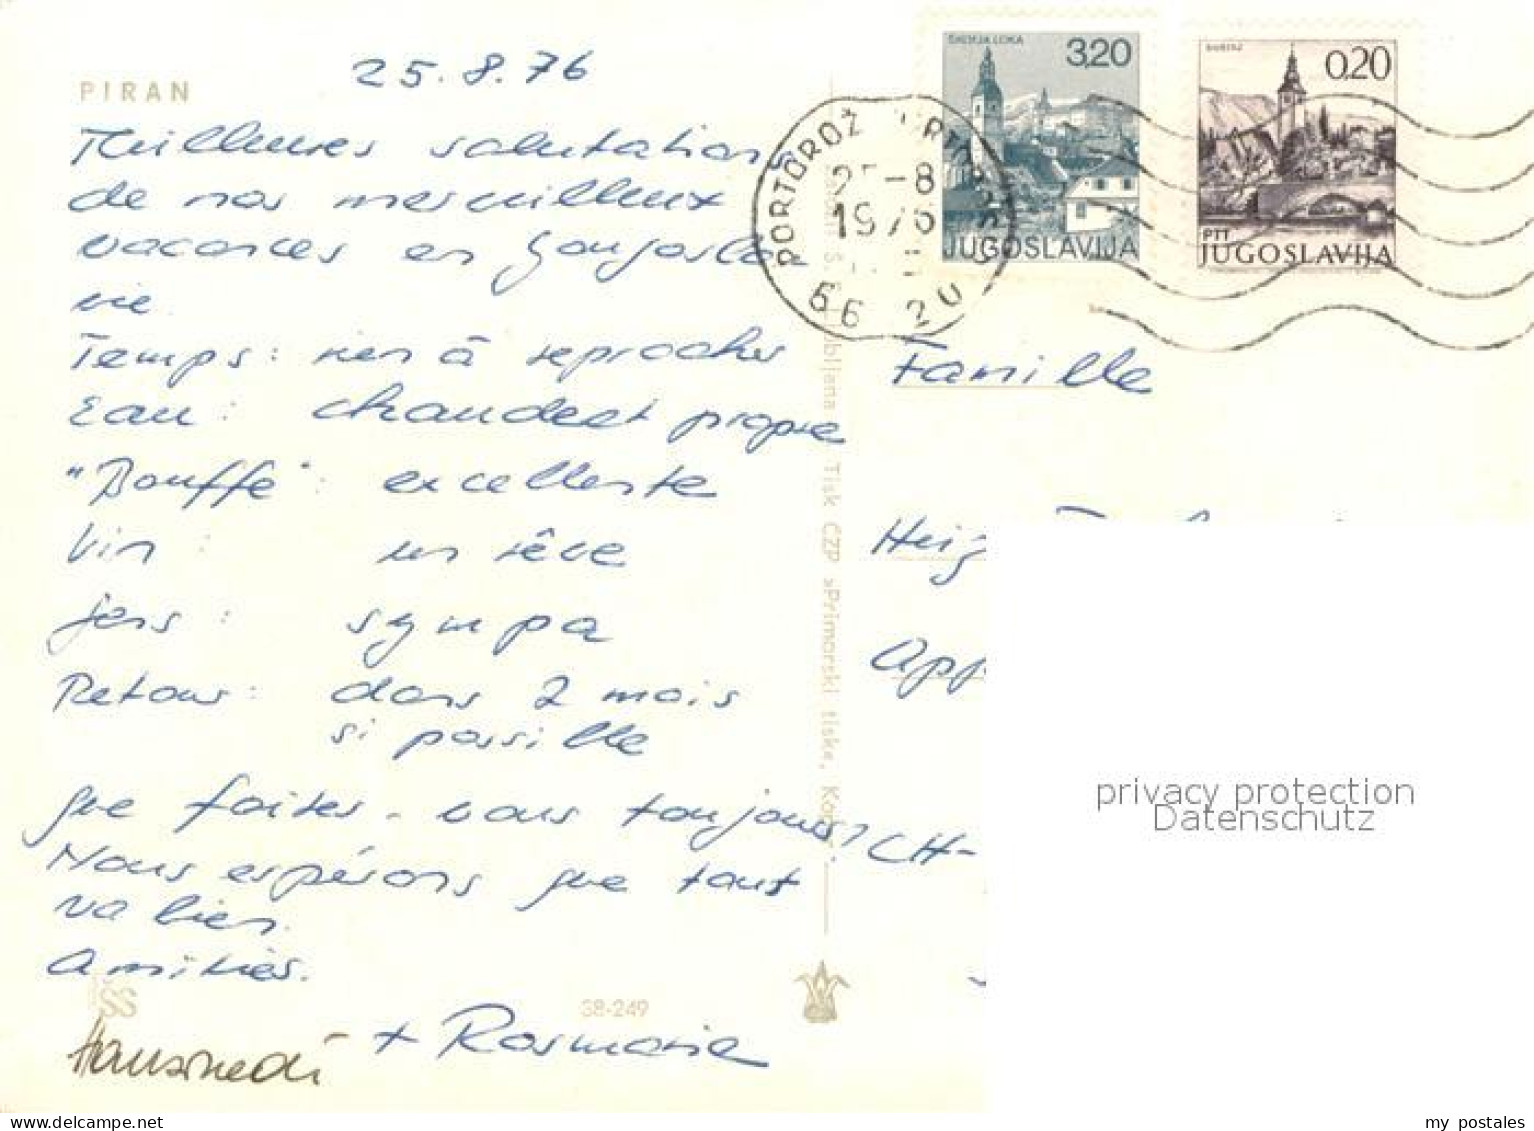 PIRAN
25.8.76
Meilleures salutations
de nos merveilleux
vacances en Yougosla
vie.
Temps: rien à reprocher
Eau: chaude et propre
"Bouffe": excellente
Vin : un rêve
gens : sympa
Retour: dans 2 mois
si possible
que faites-vous toujours?
Nous espérons que tout
va bien.
Amitiés.
Hansruedi + Rosmarie
38-249
ŠKOFJA LOKA
3,20
JUGOSLAVIJA
BOHINJ
0,20
PTT
JUGOSLAVIJA
PORTOROŽ
25-8
1976
66 20
Tisk ČZP »Primorski tisk«,
Famille
CH-
privacy protection
Datenschutz
my postales